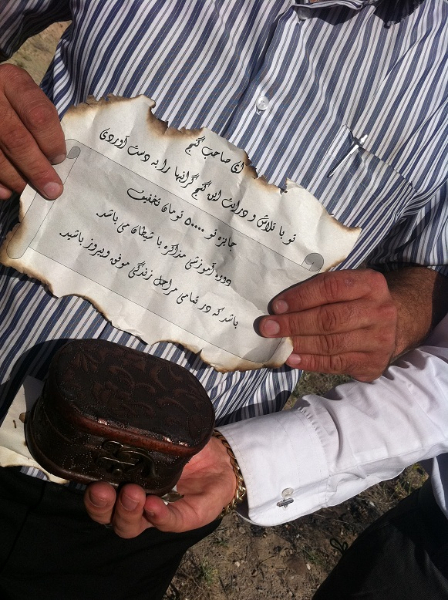 ای صاحب گنج
تو با تلاش و درایت این گنج گرانبها را به دست آوردی
جایزه تو ۵۰۰۰۰ تومان تخفیف
دوره آموزشی مذاکره با شیطان می باشد
باشد که در تمامی مراحل زندگی موفق و پیروز باشید.